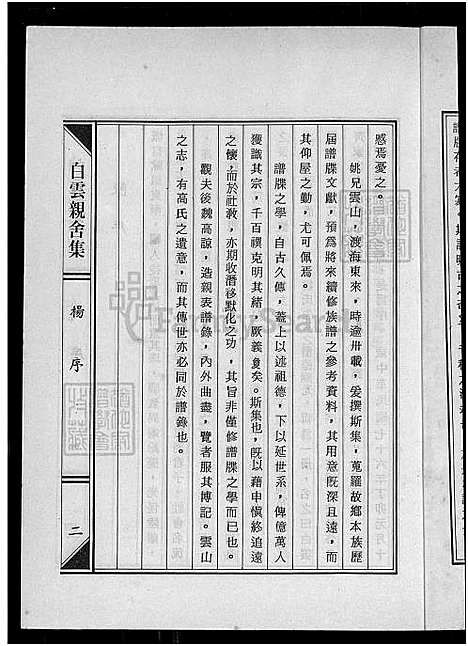 慼焉憂之。
姚兄雲山，渡海東來，時逾卅載，爰撰斯集，蒐羅故鄉本族歷
屆譜牒文獻，預為將來續修族譜之參考資料，其用意既深且遠，而
其仰屋之勤，尤可佩焉。
譜牒之學，自古久傳，蓋上以述祖德，下以延世系，俾億萬人
獲識其宗，千百禩克明其緒，厥義夐矣。斯集也，既以藉申慎終追遠
之懷，而於社教，亦期收潛移默化之功，其旨非僅修譜牒之學而已也。
觀夫後魏高諒，造親表譜錄，內外曲盡，覽者服其博記。雲山
之志，有高氏之遺意，而其傳世亦必同於譜錄也。
白雲親舍集
楊序
二